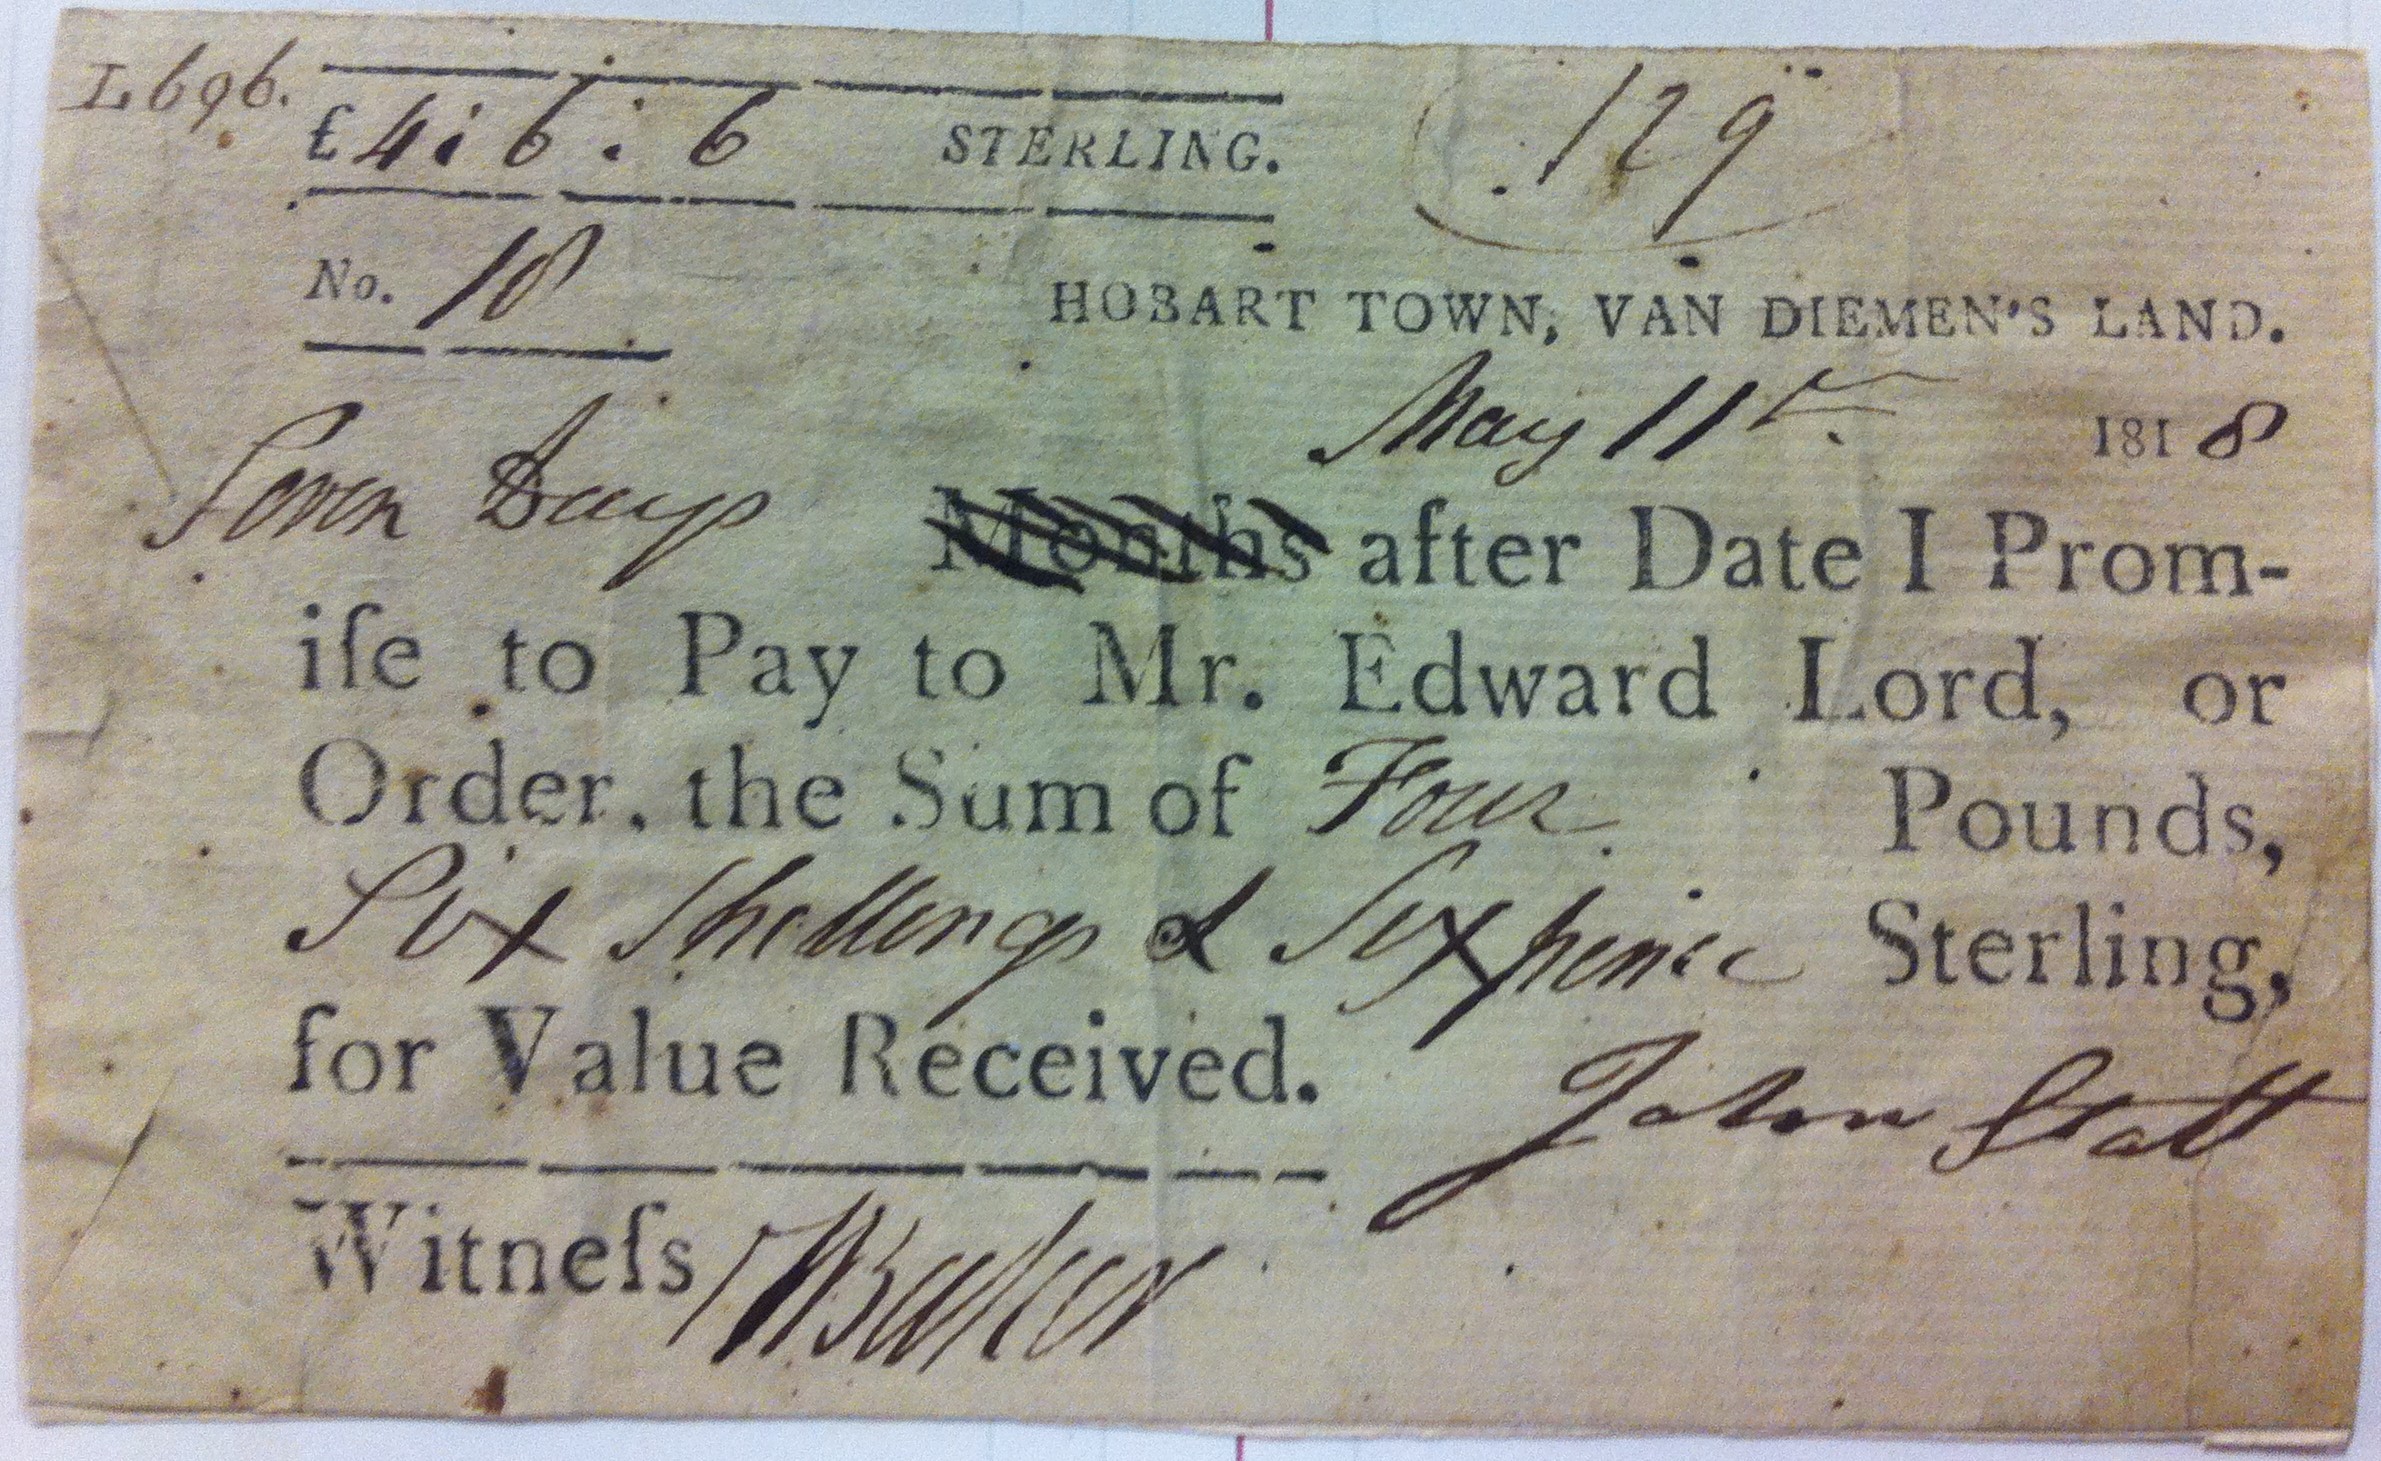 L696.
£4:6:6 STERLING.
129
No. 18
HOBART TOWN, VAN DIEMEN'S LAND.
May 11th 1818
Seven Days Months after Date I Prom-
iſe to Pay to Mr. Edward Lord, or
Order, the Sum of Four Pounds,
Six Shillings & Sixpence Sterling,
for Value Received.
John Statt
Witneſs